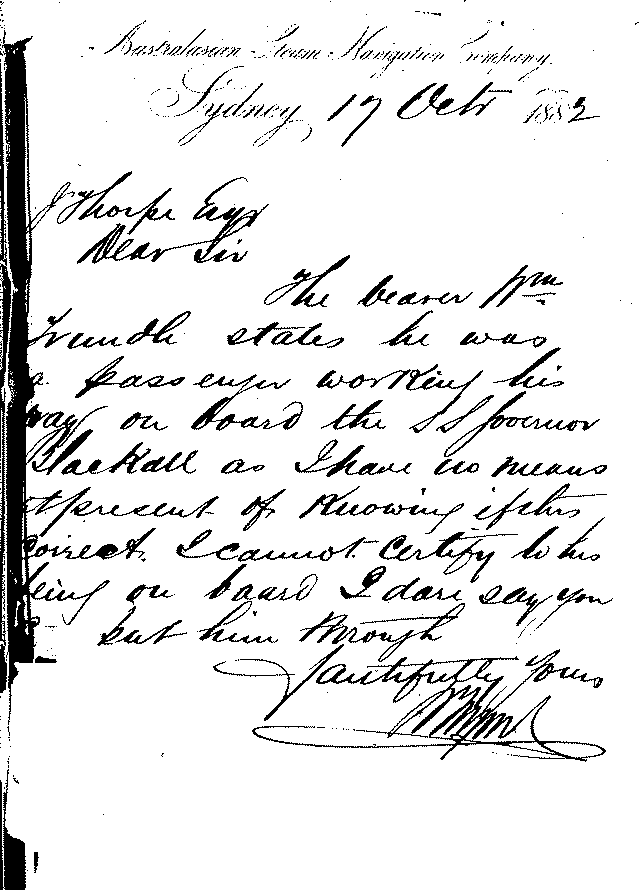 Australasian Steam Navigation Company.
Sydney, 17 Octr 1882
J Thorpe Esqr
Dear Sir
The bearer Wm
states he was
a passenger working his
way on board the SS Governor
Blackall as I have no means
at present of knowing if this
correct. I cannot certify to his
being on board I dare say you
put him through
Faithfully Yours